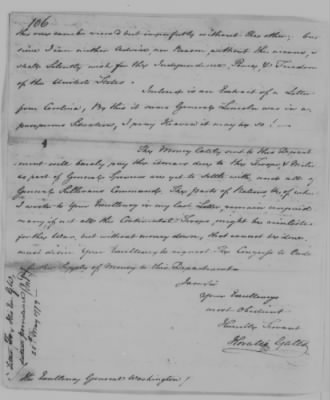 106
the ones can be viewed but imperfectly without the other; but
since I can neither advise, nor Reason, without the means, I
shall Silently wish for the Independence, Peace, & Freedom
of the United States.
Inclosed is an Extract of a Letter
from Carolina, By this it seems General Lincoln was in a
prosperous Situation, I pray Heaven it may be so! —
The Money lately sent to this Depart
ment will barely pay the arrears due to the Troops, & Brita
as part of General Glovers are yet to settle with, and all
General Sullivans Command. The parts of Nations &c. of whom
I wrote to Your Excellency in my last Letter, remain unpaid
many if not all the Continental Troops might be reinlisted
for the War, but without money down, that cannot be done,
must desire Your Excellency to request the Congress to Order
further Supply of Money to this Department.
I am Sir
Your Excellencys
most Obedient
Humble Servant
Horatio Gates
His Excellency General Washington!
Letter from Major Genl. Gates
25th May 1779